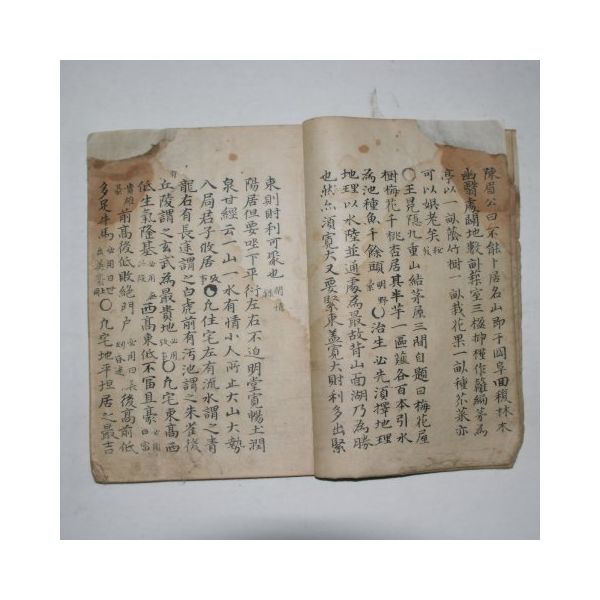 陳眉公曰不能卜居名山即于岡阜回複林木
幽翳處闢地數畝築室三楹挿槿作籬編茅為
亭以一畝蔭竹樹一畝栽花果一畝種芥菜亦
可以娯老矣
〇王晃隱九里山結茅屋三間自題曰梅花屋
樹梅花千桃杏居其半芋一區薤各百本引水
為池種魚千餘頭 〇治生必先須擇地理
地理以水陸並通處為最故背山面湖乃為勝
也然亦須寛大又要緊束盖寛大財利多出緊
束則財利可聚也
陽居但要坐下平衍左右不迫明堂寛暢土潤
泉甘經云一山一水有情小人所止大山大勢
入局君子攸居 〇凡住宅左有流水謂之青
龍右有長途謂之白虎前有汚池謂之朱雀後
丘陵謂之玄武為最貴地 必用 〇凡宅東高西
低生氣隆基 西高東低不富且豪
前高後低敗絶門户 必用曰長 後高前低
多足牛馬 必用曰 〇凡宅地平坦居之最吉